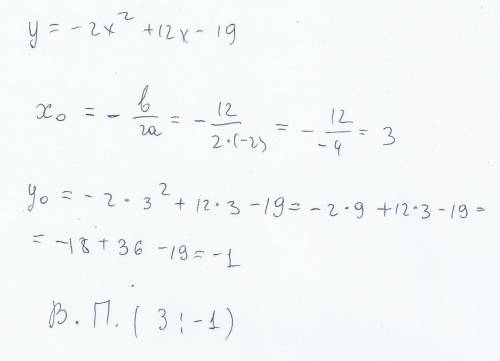 y = -2x² + 12x - 19
x₀ = - в/2a = - 12/(2·(-2)) = - 12/-4 = 3
y₀ = -2·3² + 12·3 - 19 = -2·9 + 12·3 - 19 =
= -18 + 36 - 19 = -1
В.П. (3; -1)